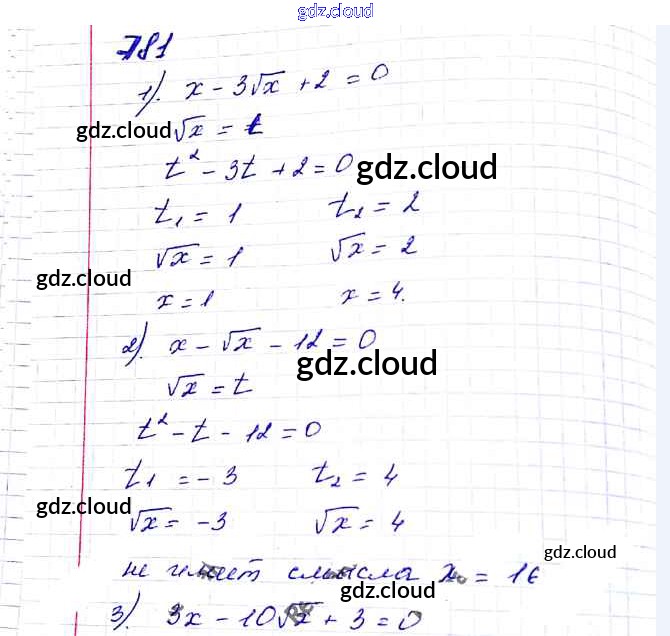 gdz.cloud
781
1). x - 3√x + 2 = 0
gdz.cloud √x = t
t² - 3t + 2 = 0 gdz.cloud
t₁ = 1 t₂ = 2
√x = 1 √x = 2
gdz.cloud
x = 1 x = 4.
2). x - √x - 12 = 0
gdz.cloud
√x = t
t² - t - 12 = 0
t₁ = -3 t₂ = 4
gdz.cloud
√x = -3 √x = 4
gdz.cloud
не имеет смысла x = 16
gdz.cloud
3). 3x - 10√x + 3 = 0